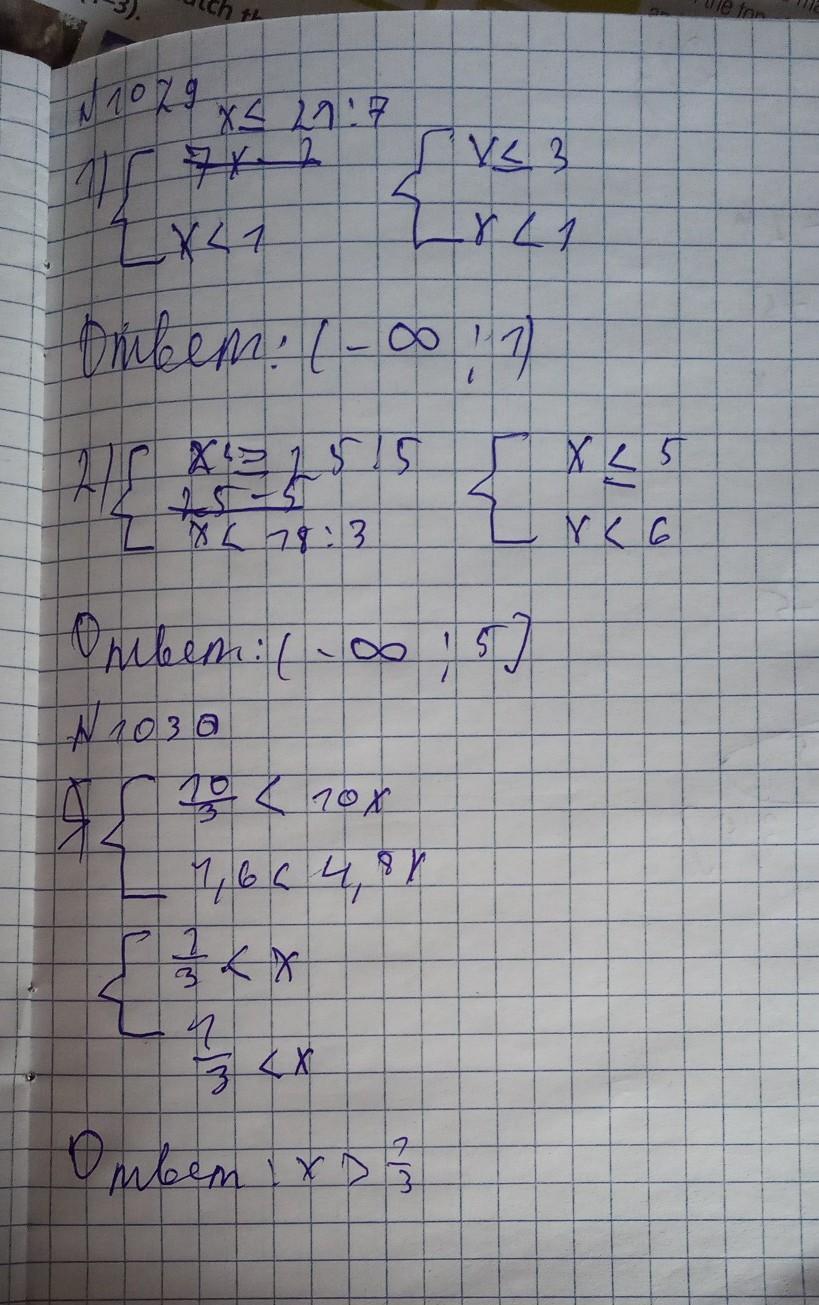 N1029
x ≤ 21 : 7
1) { x < 1 { x ≤ 3
x < 1
Ответ: (- ∞ ; 1)
2) { x ≥ 25 : 5 { x ≤ 5
25 - 5
x < 18 : 3 x < 6
Ответ: (- ∞ ; 5]
N1030
{ 10/3 < 10x
1,6 < 4,8x
{ 1/3 < x
1/3 < x
Ответ: x > 1/3